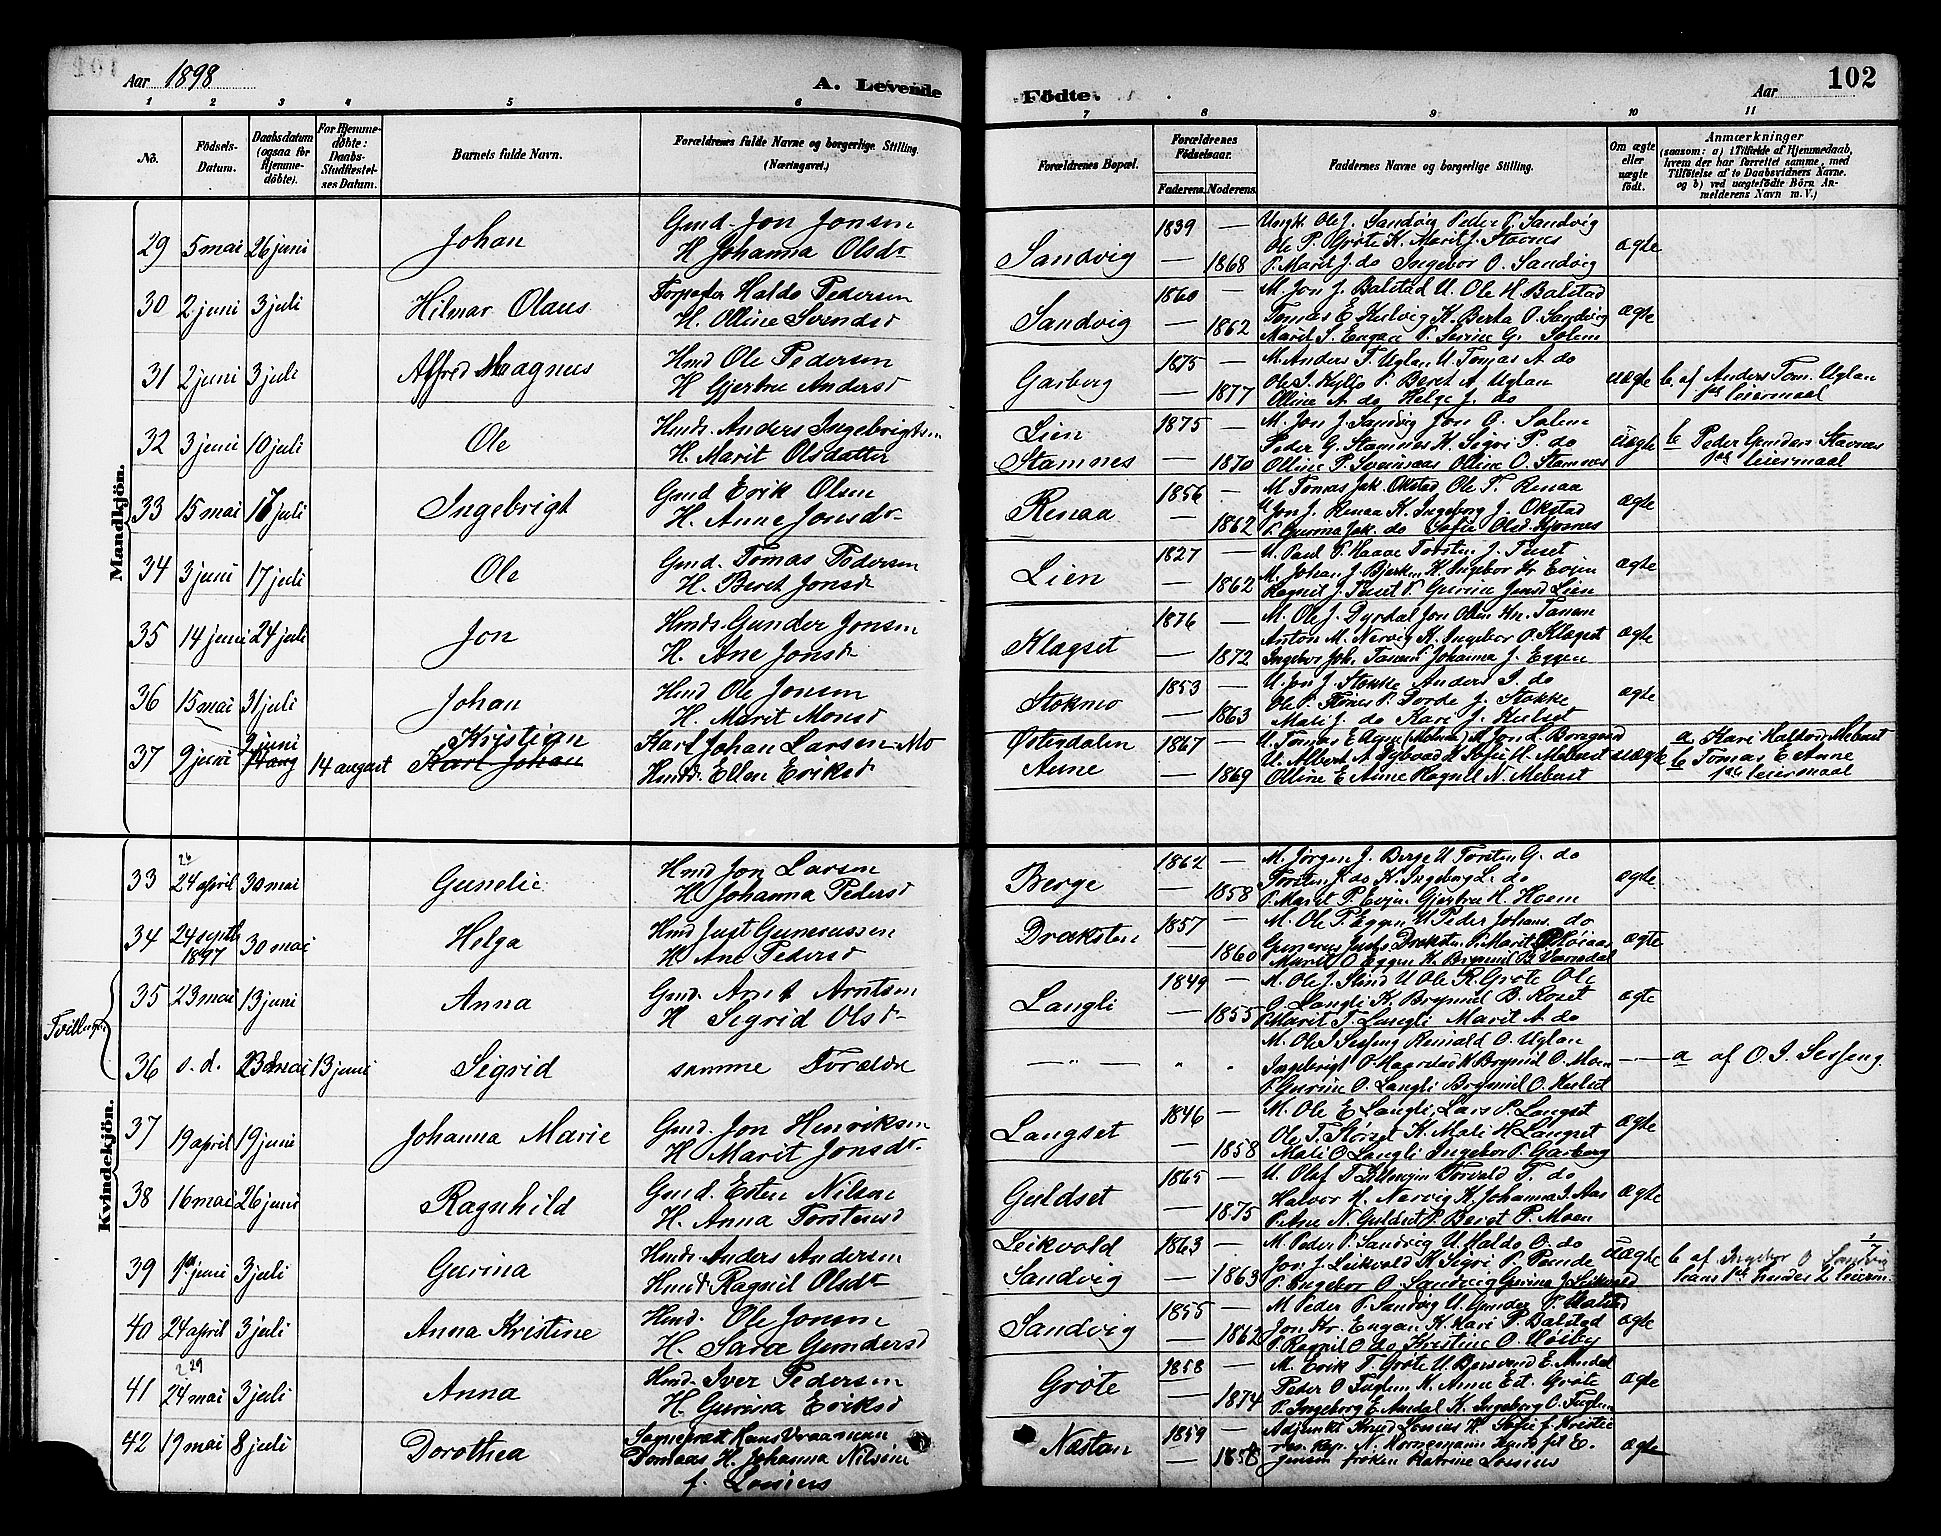 Aar 1898
A. Levende
Födte.
Aar
102
1 2 3 4 5 6 7 8 9 10 11
No.
Födsels-Datum.
Daabsdatum (ogsaa for Hjemme-döbte).
For Hjemme-döbte: Daabs-Stadfæstel-ses Datum.
Barnets fulde Navn.
Forældrenes fulde Navne og borgerlige Stilling. (Næringsvei.)
Forældrenes Bopæl.
Forældrenes Födselsaar.
Faderens. Moderens.
Faddernes Navne og borgerlige Stilling.
Om ægte eller uægte födt.
Anmærkninger
(saasom: a) i Tilfælde af Hjemmedaab, hvem der har forrettet samme, med Tilföielse af to Daabsvidners Navne. og b) ved uægtefödte Börn An-melderens Navn m. V.)
Mandkjön.
29 5 mai 26 juni Johan Gmd. Jon Jonsen
H. Johanna Olsdr Sandvig 1839 1868 Ungk. Ole J. Sandvig Peder P. Sandvig
Ole P. Grøte K. Marit J. Stavnes
P. Marit J. do Ingebor O. Sandvig ægte
30 2 juni 3 juli Hilmar Olaus Haldo Pedersen
H. Olline Svendsd Sandvig 1860 1862 M. Jon J. Balstad U. Ole H. Balstad
Tomas E K. Berta O. Sandvig
Marit S. Engan P. Serine G. Solem ægte
31 2 juni 3 juli Alfred Magnus Hmd Ole Pedersen
H Gjertru Andersd Garberg 1875 1877 M. Anders T. Uglan U. Tomas A do
Ole J. Kyllo P. Beret A. Uglan
Olline A do Helge J. do uægte b. af Anders Tom. Uglan
1ste leiermaal
32 3 juni 10 juli Ole Hmds. Anders Ingebrigtsen
H. Marit Olsdatter Lien
Stamnes 1875 1870 M. Jon J. Sandvig Jon O. Solem
Peder G. Stamnes K. Sigri P. do
Olline P. Olline O. Stamnes uægte b Peder Gunders. Stavnes
1ste leiermaal
33 15 mai 17 juli Ingebrigt Gmd Erik Olsen
H. Anne Jonsdr Renaa 1856 1862 M Tomas Jak. Okstad Ole T. Renaa
U Jon J. Renaa K. Ingeborg J. Okstad
P. Gurina Jak. do Sofie Olsd. ægte
34 3 juni 17 juli Ole Gmd. Tomas Pedersen
H. Beret Jonsd Lien 1827 1862 U. Paul P. Torsten J. Tuset
M. Johan J. K. Ingebor Kr. Evjen
Ragnil J. Tuset P. Gurine Jonsd Lien ægte
35 14 juni 24 juli Jon Hmds. Gunder Jonsen
H. Ane Jonsd Klegset 1876 1872 M. Ole J. Dyrdal Jon Olsen Tanem
Anton M. Nervig K. Ingebor O. Klegset
Ingebor Joh. Tanem Johanna J. Eggen ægte
36 15 mai 31 juli Johan Hmd Ole Jonsen
H. Marit Monsd Stokmo 1853 1863 U. Jon J. Stokke Anders J. do
Ole P. P. Dorde J. Stokke
Mali J. do Kari J. ægte
37 9 juni 9 juni 14 aug 14 august Kristian
Karl Johan Karl Johan Larsen Mo
Hmds. Ellen Eriksd Østerdalen
Aune 1867 1869 U. Tomas E Aune Jon L. Borøgaard
U. Albert A K. Sofie H. Mebust
Olline E Aune Ragnil N. Mebust uægte a Kari Mebust
b Tomas E. Aune
1ste leiermaal
Kvindekjön.
33 26
24 april 30 mai Gunelie Hmd Jon Larsen
H Johanna Pedersd Berge 1862 1858 M. Jørgen J. Berge U. Torsten G. do
Torsten J. do K. Ingeborg L. do
P. Marit P. Evjen Gjertru H. Hoem ægte
34 24 septb
1897 30 mai Helga Hmd Just Gunerussen
H Ane Pedersd Drøksten 1857 1860 M. Ole P. Eggen U Peder Johans. do
Gunerus Justs. P. Marit
Marit O. Eggen K. Brynnil B. ægte
Tvillinger
35 23 mai 13 juni Anna Gmd. Arnt Arntsen
H Sigrid Olsdr Langli 1849 1855 M. Ole J. U Ole R. Grøte Ole
O. Langli K. Brynnil B. Roset
P. Marit T. Langli Marit A. do ægte
36 s. d. 23 mai 13 juni Sigrid samme Forældre M. Ole J. Sesseng Reinald O. Uglan
Ingebrigt O. K. Brynnil O. Moen
P. Gurine O. Langli Brynnil O. a af O. J. Sesseng.
37 19 april 19 juni Johanna Marie Gmd. Jon Henriksen
H Marit Jonsdr Langset 1846 1858 M. Ole E Langli, Lars P. Langset
Ole T. K. Mali H. Langset
Mali O Langli Ingebor P. Garberg ægte
38 16 mai 26 juni Ragnhild Gmd. Esten Nilsen
H. Anna Torstensd Guldset 1865 1875 U. Olaf T. Torvald T. do
Halvor H. Nervig K. Johanna J. Aas
P. Ane N. Guldset P. Beret P. Moen ægte
39 1ste juni 3 juli Gurina Hmds. Anders Andersen
Hmds. Ragnil Olsdr Leikvold
Sandvig 1863 1863 M. Peder P. Sandvig U. Haldo O. do
Jon J. Leikvold K. Sigri P.
P. Ingebor O. Sandvig Gurine J. Leikvold uægte b af Ingebor O. Sandvig
hans 1ste hendes 2 leierm.
40 24 april 3 juli Anna Kristine Hmd. Ole Jonsen
H. Sara Gundersd Sandvig 1855 1862 M Peder P. Sandvig U. Gunder P. Balstad
Jon Kr. Engan K. Kari P Balstad
P. Ragnil O do Kristine O. Mosby ægte
41 29
24 mai 3 juli Anna Hmd. Iver Pedersen
H. Gurina Eriksd Grøte 1858 1874 M. Erik T. Grøte U. Bersvend E. Andal
Peder O Fuglem K. Anne Est. Grøte
P. Ingeborg E Andal K. Ingeborg O. Fuglem ægte
42 19 mai 8 juli Dorothea Sogneprest Hans Vraamann
Tomaas H. Johanna Nilsine
f. Lossius Næstan 1859 1858 Adjunkt Knud Lossius H. Sofie f. Kristie
res. kap. A. Hornemann
Jensen frøken Katrine Lossius ægte